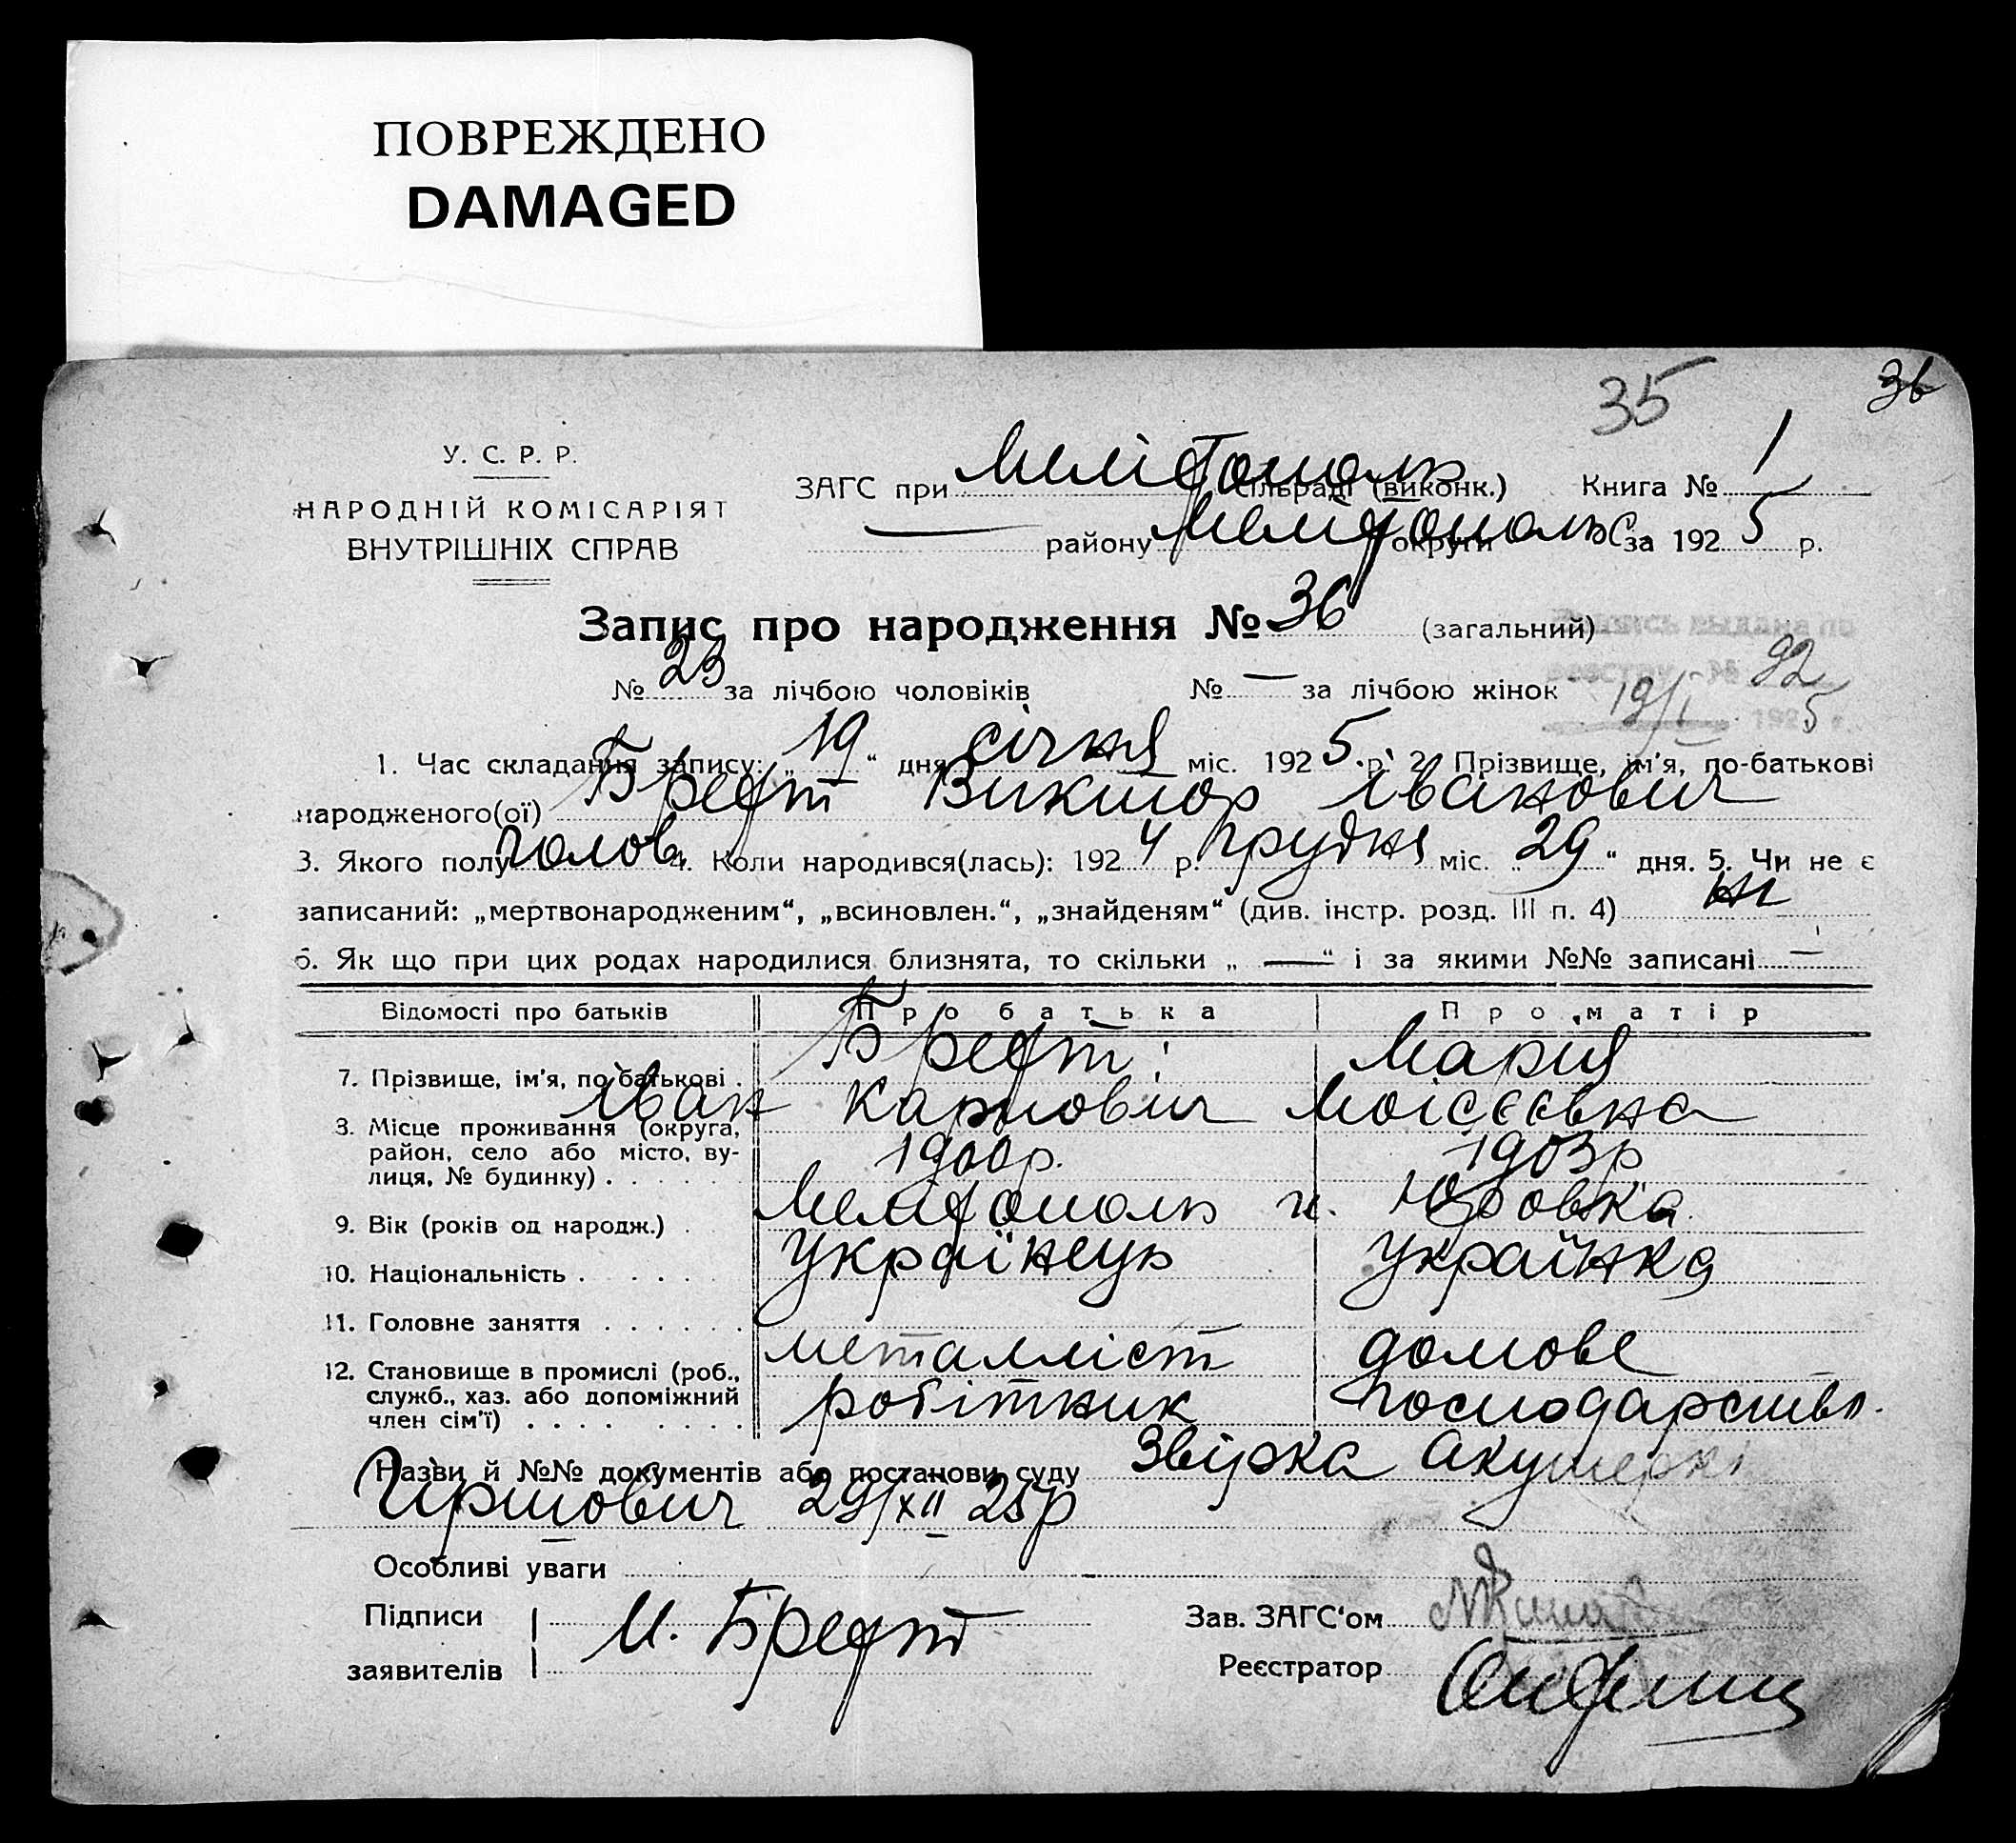 ПОВРЕЖДЕНО
DAMAGED
35 36
У. С. Р. Р.
НАРОДНІЙ КОМІСАРІЯТ
ВНУТРІШНІХ СПРАВ
ЗАГС при Мелітополь сільраді (виконк.) Книга № 1
— району Мелітопольс округи за 1925 р.
Запис про народження № 36 (загальний)
№ 23 за лічбою чоловіків № — за лічбою жінок
выдана по
реестру № 92
19/I 1925 г.
1. Час складання запису: „19“ дня січня міс. 1925 р. 2. Прізвище, ім'я, по-батькові
народженого(ої) Брефт Виктор Іванович
3. Якого полу чолов. 4. Коли народився(лась): 1924 р. грудня міс. „29“ дня. 5. Чи не є
записаний: „мертвонародженим“, „всиновлен.“, „знайденям“ (див. інстр. розд. III п. 4) ні
6. Як що при цих родах народилися близнята, то скільки „—“ і за якими №№ записані —
Відомості про батьків Про батька Про матір
7. Прізвище, ім'я, по батькові . Брефт Мария
Іван Карпович Моісєєвна
8. Місце проживання (округа,
район, село або місто, ву-
лиця, № будинку) . . . . . .
1900р. 1903р
Мелітополь н. Юровка
9. Вік (років од народж.) .
українець українка
10. Національність . . . . .
11. Головне заняття . . . . . .
металліст домове
12. Становище в промислі (роб.,
служб., хаз. або допоміжний
член сім'ї) . . . . . . . .
робітник господарство.
Назви й №№ документів або постанови суду Звірка акушеркі
Гіршович 29/XII 25р
Особливі уваги
Підписи
заявителів
И. Брефт
Зав. ЗАГС'ом
Реєстратор